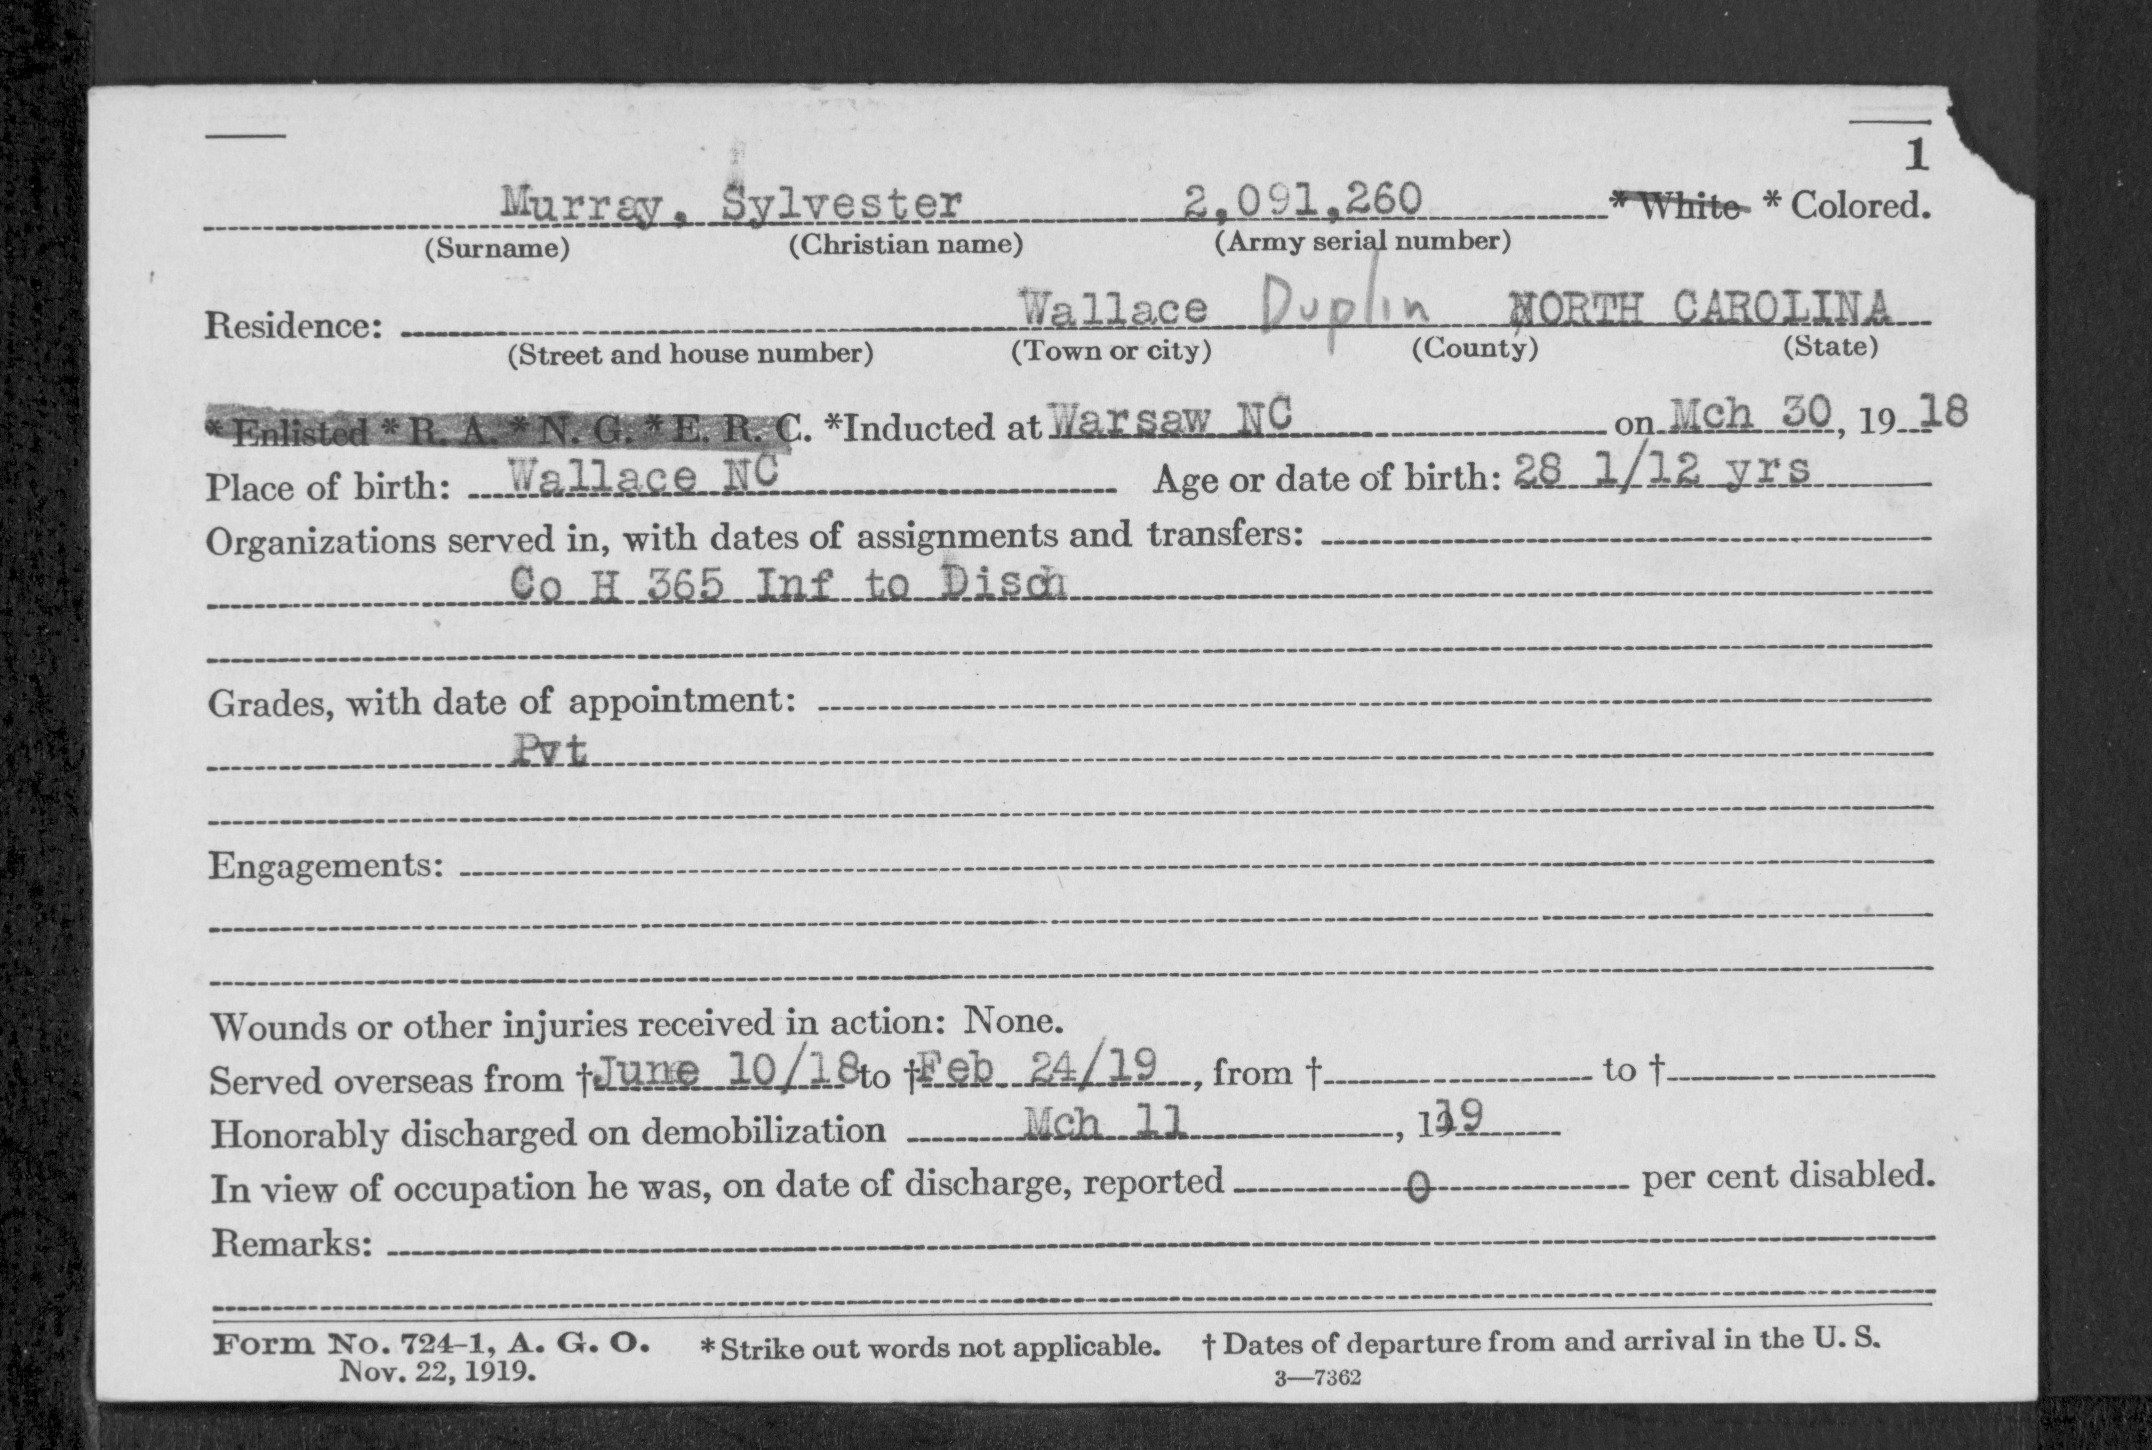 1
Murray, Sylvester 2,091,260 * White * Colored.
(Surname) (Christian name) (Army serial number)
Residence: Wallace Duplin NORTH CAROLINA
(Street and house number) (Town or city) (County) (State)
* Enlisted * R. A. * N. G. * E. R. C. *Inducted at Warsaw NC on Mch 30, 19 18
Place of birth: Wallace NC Age or date of birth: 28 1/12 yrs
Organizations served in, with dates of assignments and transfers:
Co H 365 Inf to Disch
Grades, with date of appointment:
Pvt
Engagements:
Wounds or other injuries received in action: None.
Served overseas from †June 10/18 to †Feb 24/19, from † to †
Honorably discharged on demobilization Mch 11, 1919
In view of occupation he was, on date of discharge, reported 0 per cent disabled.
Remarks:
Form No. 724-1, A. G. O. * Strike out words not applicable. † Dates of departure from and arrival in the U. S.
Nov. 22, 1919. 3—7362